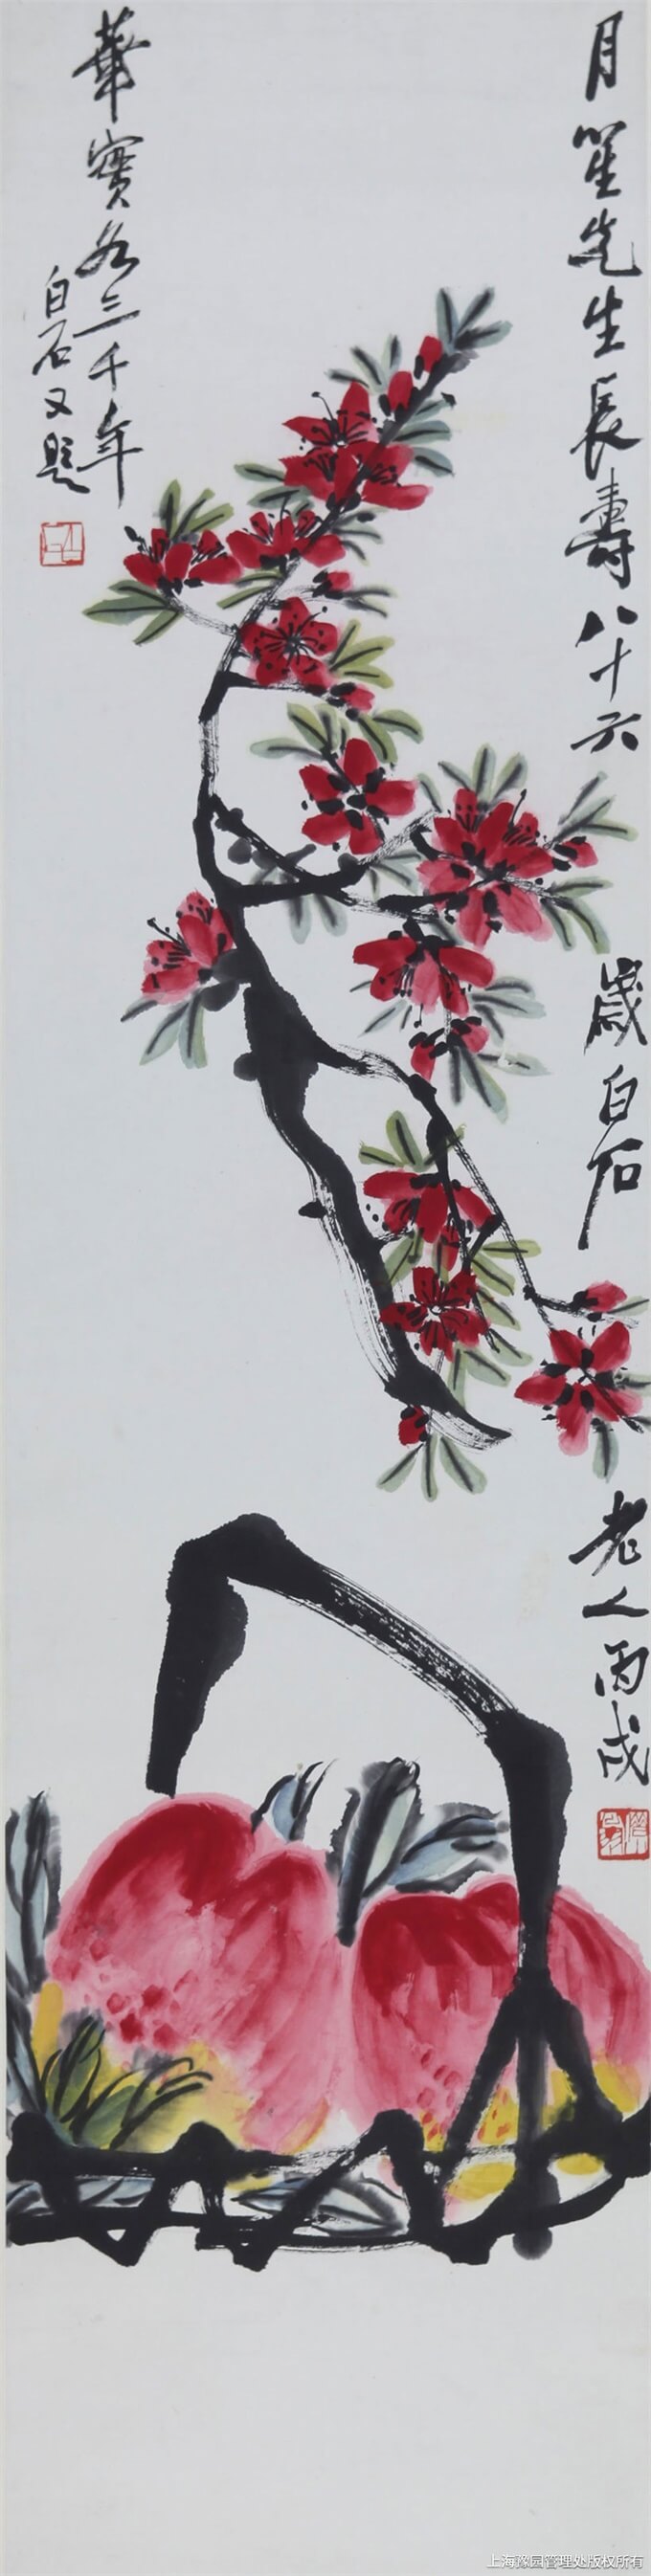 月笙先生長壽八十六歲白石老人丙戌
華實各三千年
白石又題
上海豫园管理处版权所有